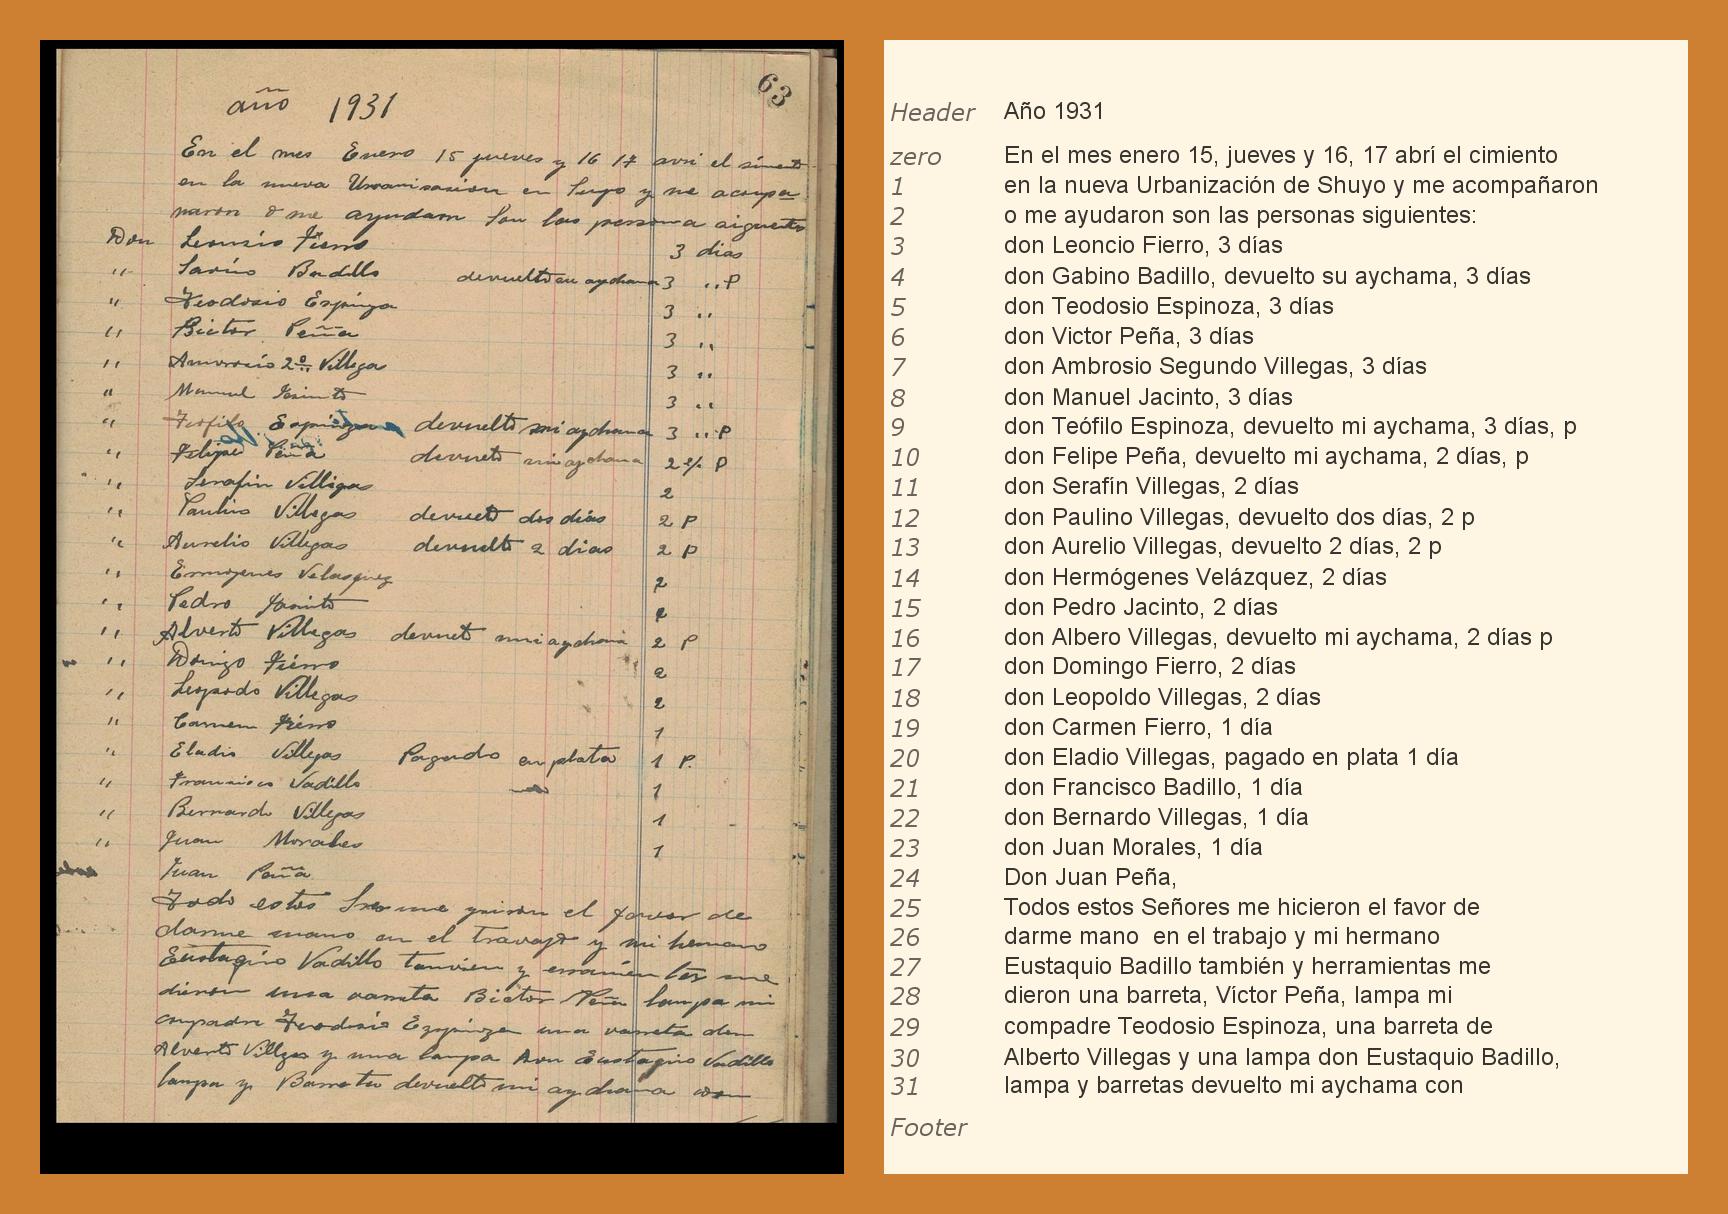 63
año 1931
En el mes Enero 15 jueves y 16 17 avri el simento
en la nueva Urvanisacion en Suyo y me acompa
naron o me ayudaron Son las persona siguento
Don Leoncio Fierro 3 dias
" Badillo devuelto su aychama 3 " P
" Teodosio Espinoza 3 "
" Bictor Peña 3 "
" Amvrocio 2º Villega 3 "
" Manuel Jasinto 3 "
" Teofilo Espinoza devuelto mi aychama 3 " P
" Felipe Peña devueto mi aychama 2 P
" Serafin Villegas 2
" Paulino Villegas devueto dos dias 2 P
" Aurelio Villegas devuelto 2 dias 2 P
" Ermogenes Velasquez 2
" Pedro Jasinto 2
" Alverto Villegas devueto mi aychama 2 P
" Domigo Fierro 2
" Leopordo Villegas 2
" Carmen Fierro 1
" Eladio Villegas Pagado en plata 1 P.
" Francisco Vadillo 1
" Bernardo Villegas 1
" Juan Morales 1
Juan Peña
Todo estos Sres me el favor de
darme mano en el travajo y mi hermano
Eustaqio Vadillo tanvien y me
dieron una varreta Bictor Peña lampa mi
conpadre Teodosio Ezpinoza una varreta don
Alverto Villgas y una lampa don Eustaqio Vadillo
lampa y Barreta devuelto mi aychama con
Header Año 1931
zero En el mes enero 15, jueves y 16, 17 abrí el cimiento
1 en la nueva Urbanización de Shuyo y me acompañaron
2 o me ayudaron son las personas siguientes:
3 don Leoncio Fierro, 3 días
4 don Gabino Badillo, devuelto su aychama, 3 días
5 don Teodosio Espinoza, 3 días
6 don Victor Peña, 3 días
7 don Ambrosio Segundo Villegas, 3 días
8 don Manuel Jacinto, 3 días
9 don Teófilo Espinoza, devuelto mi aychama, 3 días, p
10 don Felipe Peña, devuelto mi aychama, 2 días, p
11 don Serafín Villegas, 2 días
12 don Paulino Villegas, devuelto dos días, 2 p
13 don Aurelio Villegas, devuelto 2 días, 2 p
14 don Hermógenes Velázquez, 2 días
15 don Pedro Jacinto, 2 días
16 don Albero Villegas, devuelto mi aychama, 2 días p
17 don Domingo Fierro, 2 días
18 don Leopoldo Villegas, 2 días
19 don Carmen Fierro, 1 día
20 don Eladio Villegas, pagado en plata 1 día
21 don Francisco Badillo, 1 día
22 don Bernardo Villegas, 1 día
23 don Juan Morales, 1 día
24 Don Juan Peña,
25 Todos estos Señores me hicieron el favor de
26 darme mano  en el trabajo y mi hermano
27 Eustaquio Badillo también y herramientas me
28 dieron una barreta, Víctor Peña, lampa mi
29 compadre Teodosio Espinoza, una barreta de
30 Alberto Villegas y una lampa don Eustaquio Badillo,
31 lampa y barretas devuelto mi aychama con
Footer